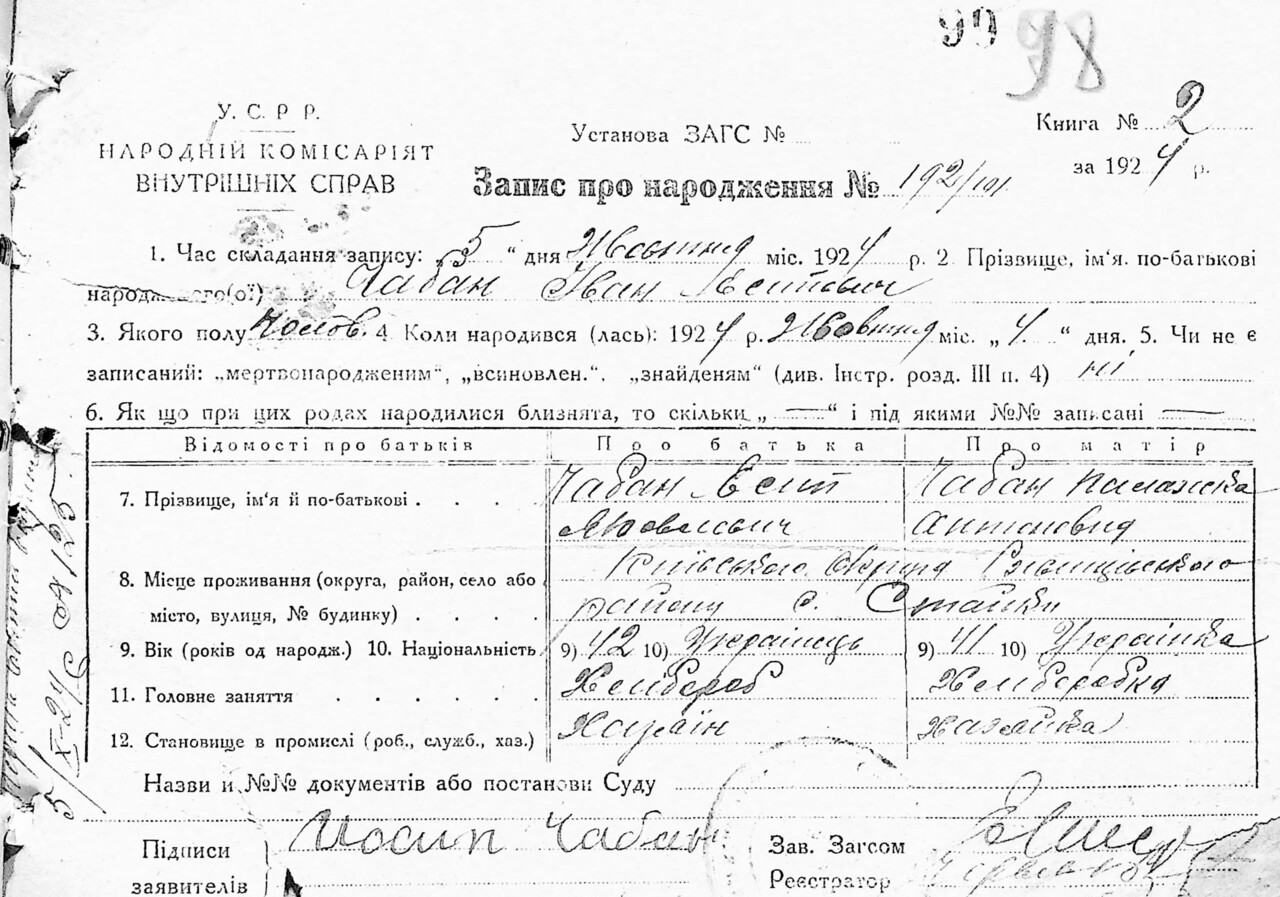 99 98
У. С. Р Р.
НАРОДНІЙ КОМІСАРІЯТ
ВНУТРІШНІХ СПРАВ
Установа ЗАГС №
Книга № 2
за 1924 р.
Запис про народження № 192/101
1. Час складання запису: „5“ дня Жовтня міс. 1924 р. 2 Прізвище, ім‘я. по-батькові
народженого(ої) Чабан Іван Йосипович
3. Якого полу Чолов. 4 Коли народився (лась): 1924 р. Жовтня міс. „4.“ дня. 5. Чи не є
записаний: „мертвонародженим“, „всиновлен.“, „знайденям“ (див. Інстр. розд. III п. 4) ні
6. Як що при цих родах народилися близнята, то скільки „ — “ і під якими №№ записані —
Відомості про батьків Про батька Про матір
7. Прізвище, ім‘я й по-батькові . . . . Чабан Йосип Чабан Палажка
Яковлевич Антоновна
8. Місце проживання (округа, район, село або Київського Округа Ржищівського
місто, вулиця, № будинку) . . . . району с. Стайки
9. Вік (років од народж.) 10. Національність 9) 42 10) Українець 9) 41 10) Українка
11. Головне заняття . . . . . Хлібороб Хліборобка
12. Становище в промислі (роб., служб., хаз.) Хазяїн Хазяйка
Назви й №№ документів або постанови Суду
Підписи Иосип Чабан Зав. Загсом
заявителів Реєстратор
5/X-24